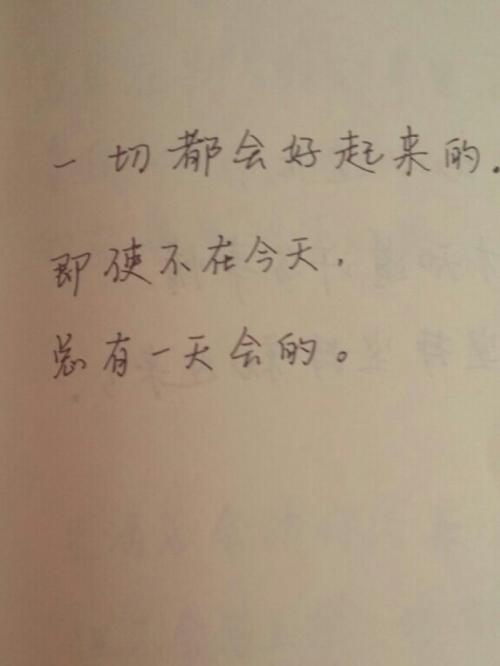 一切都会好起来的.
即使不在今天.
总有一天会的。